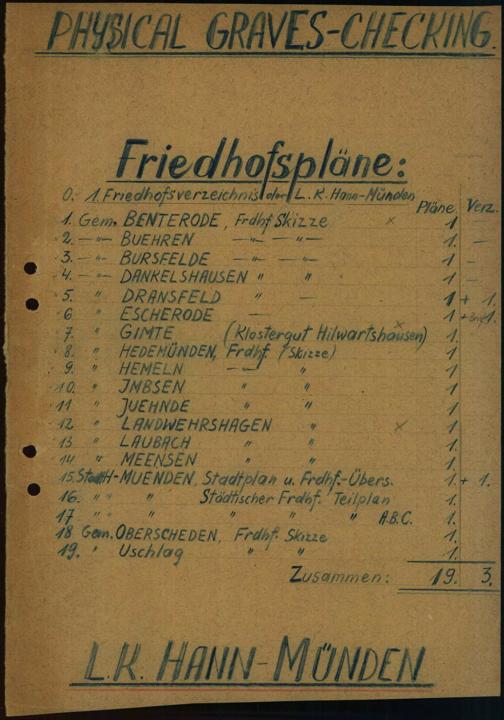 PHYSICAL GRAVES-CHECKING.
Friedhofspläne:
0. 1. Friedhofsverzeichnis der L.K. Hann-Münden
Pläne Verz.
1. Gem. BENTERODE, Frdhf Skizze x 1 —
2. —"— BUEHREN —"— —"— 1. —
3. —"— BURSFELDE —"— —"— 1 —
4. —"— DANKELSHAUSEN " " 1 —
5. " DRANSFELD " — 1 + 1.
6 " ESCHERODE — — 1 + 1.
7. " GIMTE (Klostergut Hilwartshausen) x 1.
8. " HEDEMÜNDEN, Frdhf (Skizze) 1.
9. " HEMELN —"— " 1.
10. " JMBSEN " " 1
11 " JUEHNDE " " 1.
12 " LANDWEHRSHAGEN " x 1.
13 " LAUBACH " " 1.
14 " MEENSEN " " 1.
15. Stadt H-MUENDEN, Stadtplan u. Frdhf.-Übers. 1. + 1.
16. " " " Städtischer Frdhf. Teilplan 1.
17 " " " " " " A.B.C. 1.
18 Gem. OBERSCHEDEN, Frdhf. Skizze 1.
19. " Uschlag " " 1.
Zusammen: 19. 3.
L.K. HANN-MÜNDEN